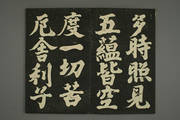 多時照見
五蘊皆空
度一切苦
厄舍利子